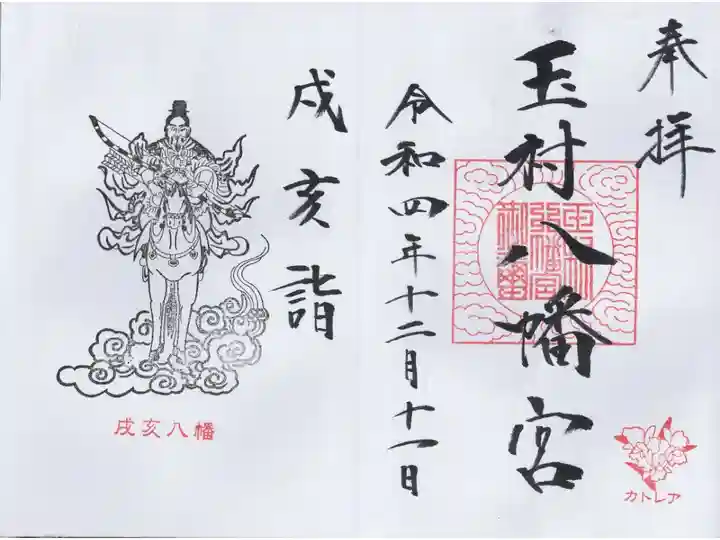 奉拝
玉村八幡宮
カトレア
令和四年十二月十一日
戌亥詣
戌亥八幡